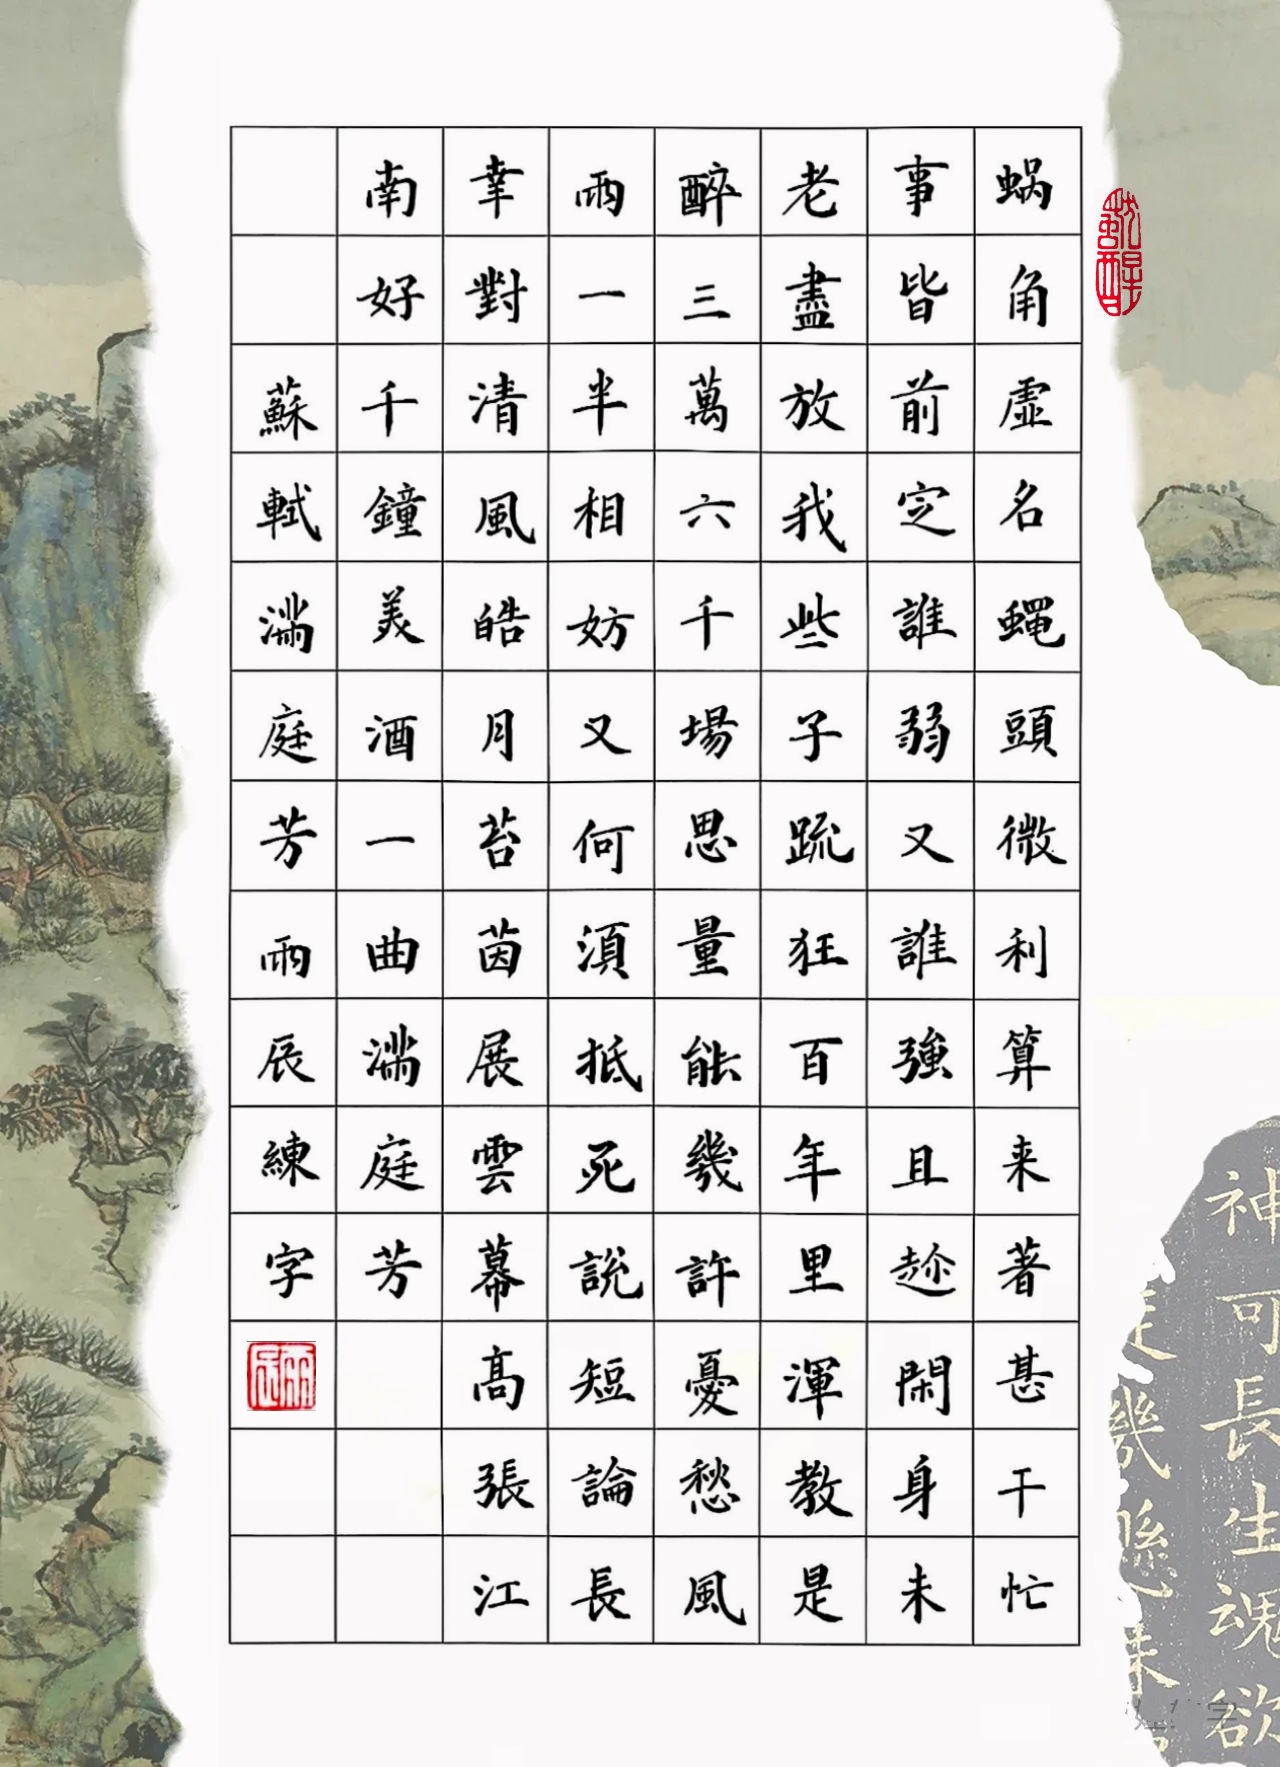 蝸角虛名蠅頭微利算来著甚干忙
事皆前定誰弱又誰強且趂閑身未
老盡放我些子疏狂百年里渾教是
醉三萬六千場思量能幾許憂愁風
雨一半相妨又何須抵死説短論長
幸對清風皓月苔茵展雲幕高張江
南好千鐘美酒一曲滿庭芳
蘇軾滿庭芳雨辰練字
雨辰
神可長生魂欲